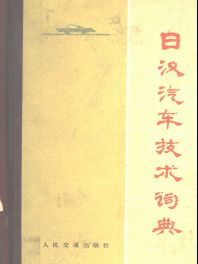 日汉汽车技术词典
人民交通出版社